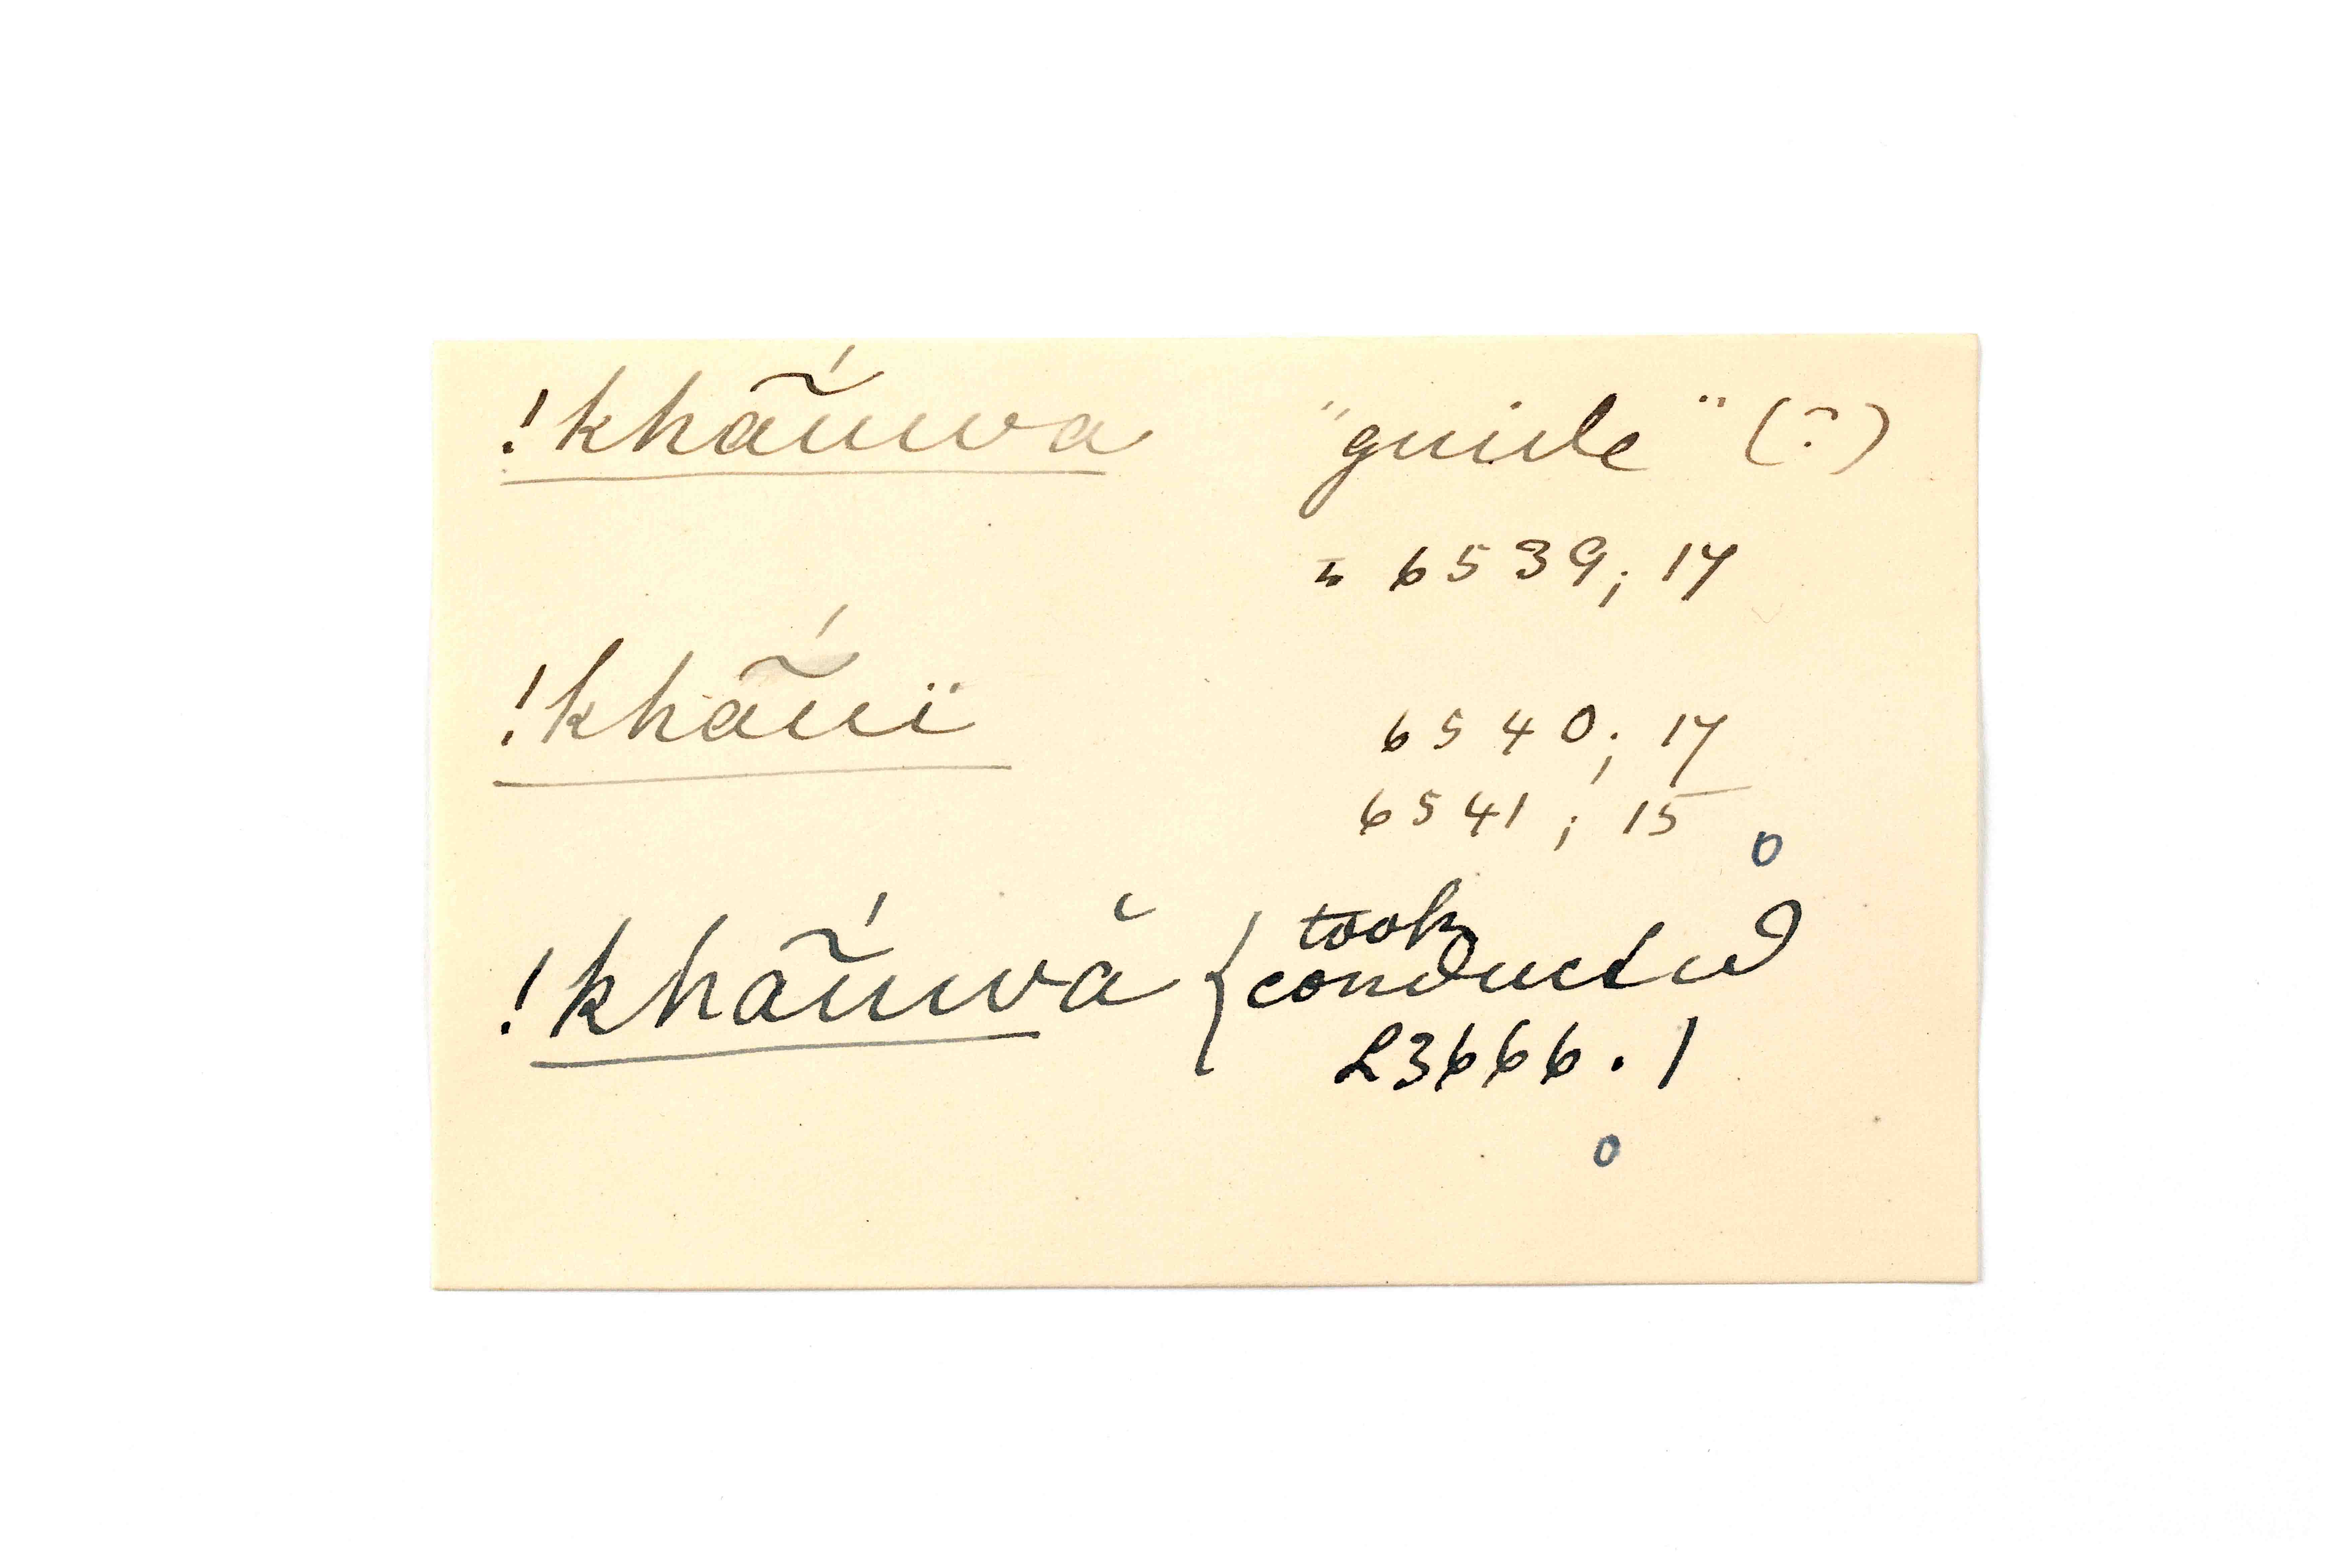 !khã́uwa "guide" (?)
= 6539; 17
!khã́uï 6540; 17
6541; 15
o
!khã́uwă { took
conducted
L3666.1
o